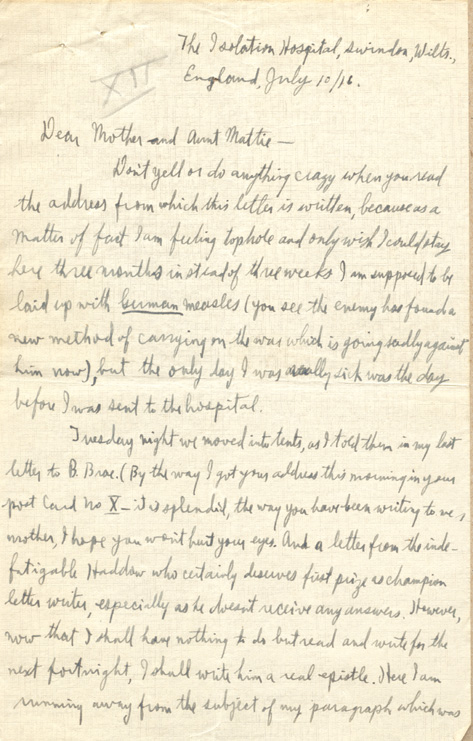 The Isolation Hospital, Swindon, Wilts.,
England, July 10/16.
XII
Dear Mother and Aunt Mattie —
Don't yell or do anything crazy when you read
the address from which this letter is written, because as a
matter of fact I am feeling tophole and only wish I could stay
here three months instead of three weeks. I am supposed to be
laid up with German measles (you see the enemy has found a
new method of carrying on the war which is going sadly against
him now), but the only day I was really sick was the day
before I was sent to the hospital.
Tuesday night we moved into tents, as I told them in my last
letter to B. Brae. (By the way I got your address this morning in your
post card No X — it is splendid, the way you have been writing to me,
mother, I hope you won't hurt your eyes. And a letter from the inde-
fatigable Haddow who certainly deserves first prize as champion
letter writer, especially as he doesn't receive any answers. However,
now that I shall have nothing to do but read and write for the
next fortnight, I shall write him a real epistle. Here I am
running away from the subject of my paragraph which was